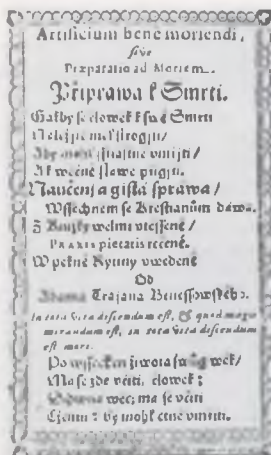 Artificium bene moriendi,
sive
Præparatio ad Mortem.
Připrawa k Smrti.
Gakby se člowěk k Smrti
měl
Aby mohl šťastně vmijti /
A k wěčné sláwe přigjti.
Naučenj a gistá sprawa /
Wssechněm se Křesťanům dáwá.
Z Knjžky welmi vtěssené /
PRAXIS pietatis řečené.
W pěkné Rytmy vwedené
Od
Adama Trajana Benessowského.
In tota vita discendum est, & quod magis
mirandum est, in tota vita discendum
est mori.
Po wssecken žiwota swůg wěk /
Má se zde včiti, člowěk ;
wěc; má se včiti
Ctěnau : by mohl ctně vmřiti.